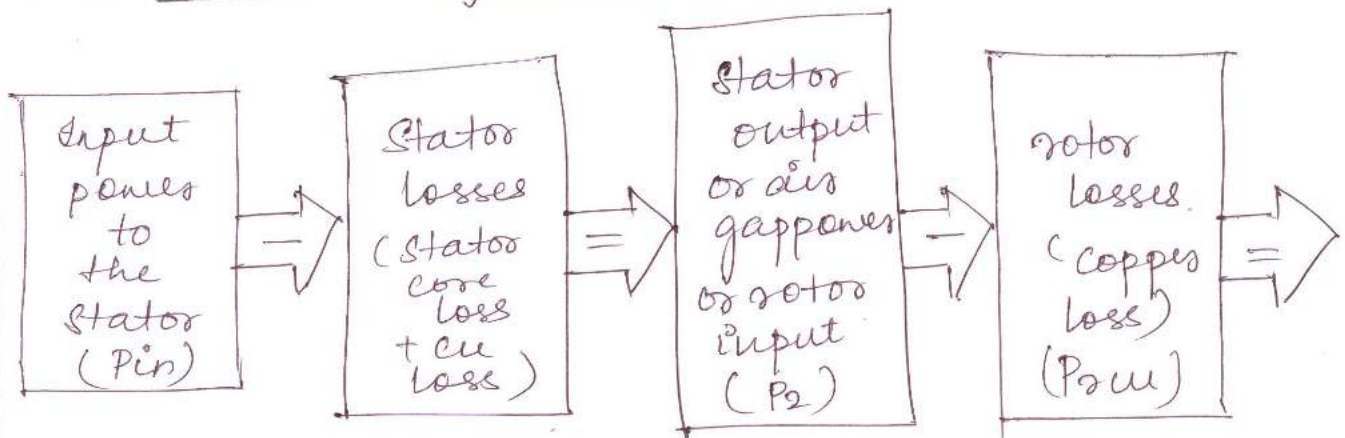 Input
power
to
the
Stator
(Pin)
=
Stator
losses
(Stator
core
loss
+ cu
loss)
=
Stator
output
or air
gappower
or rotor
input
(P2)
rotor
losses
(copper
loss)
(P2cu)
=